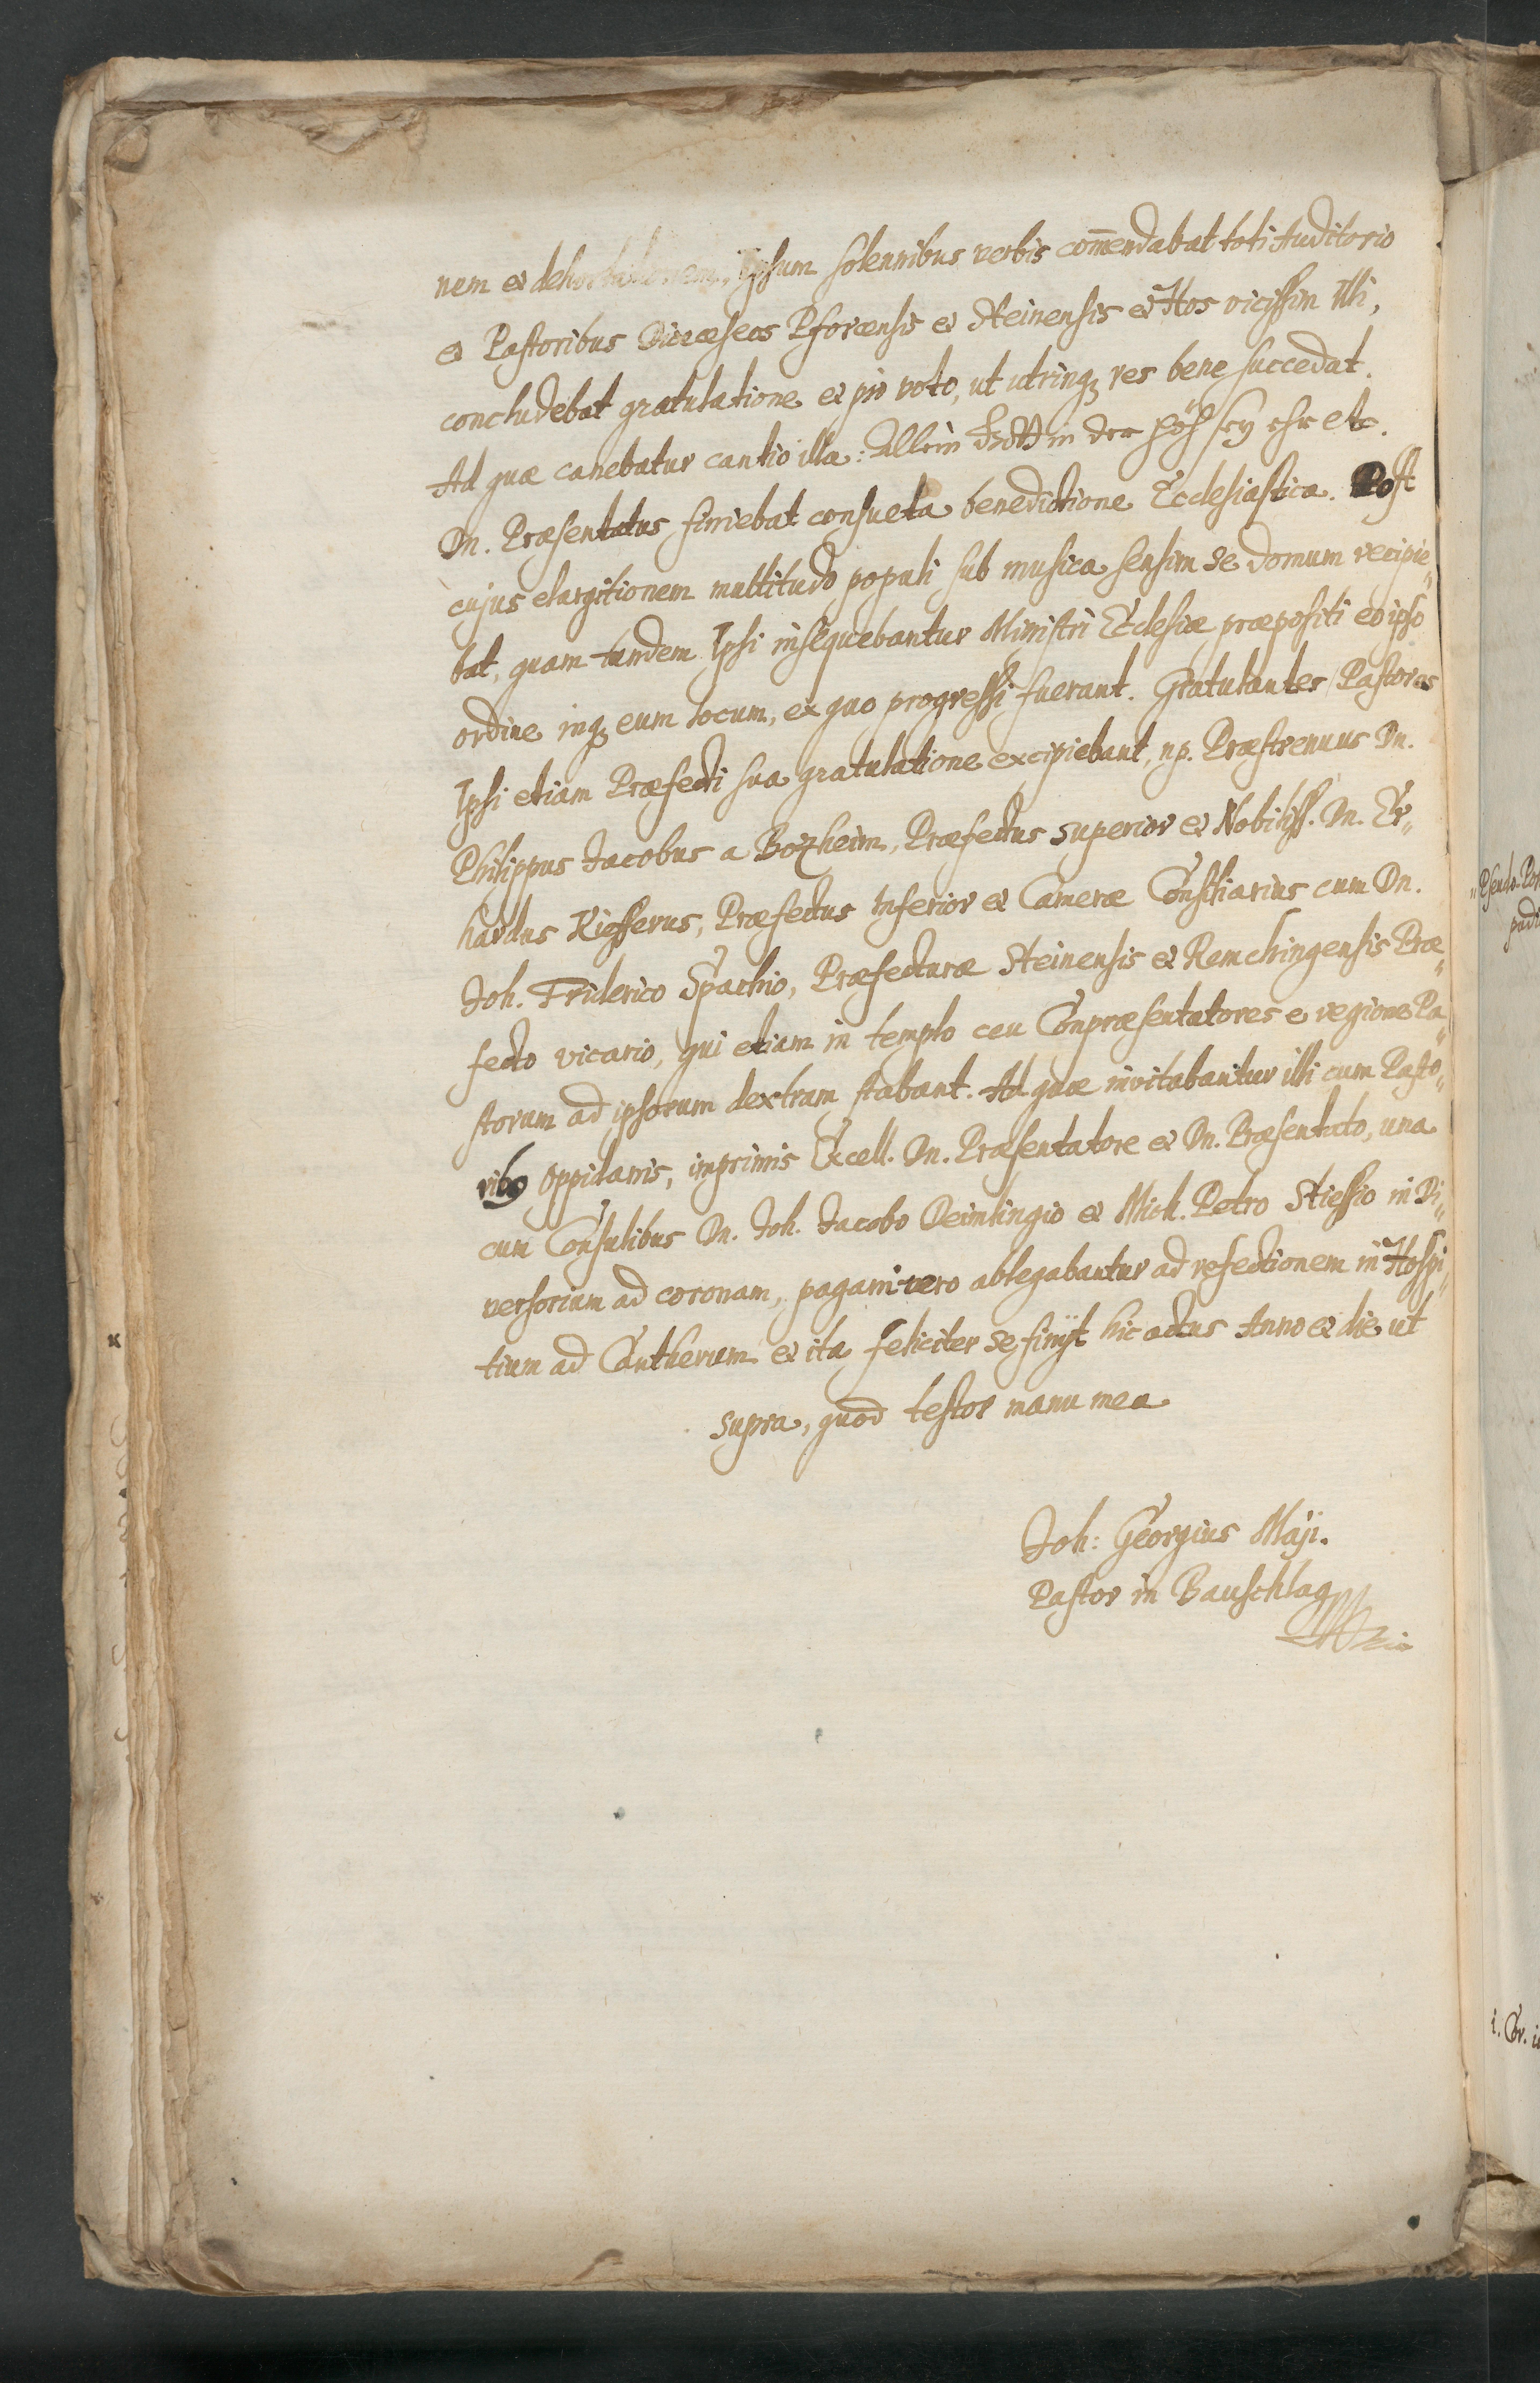 nem et dehortationem, Ipsum solennibus verbis com̄endabat toti Auditorio
et Pastoribus Dioeceseos Pforcensis et Steinensis et Hos vicissim Illi,
concludebat gratulatione et pio voto, ut utrinq; res bene succedat.
Ad quæ canebatur cantio illa: Allein Gott in der Höh sey ehr etc.
Dn. Præsentatus finiebat consueta benedictione Ecclesiastica. Post
cujus elargitionem multitudo populi sub musica sensim se domum recipie„
bat, quam tandem Ipsi insequebantur Ministri Ecclesiæ præpositi eo ipso
ordine inq; eum locum, ex quo progressi fuerant. Gratulantes Pastores
Ipsi etiam Præfecti sua gratulatione excipiebant, np. Præstrenuus Dn.
Philippus Jacobus a Bozheim, Præfectus superior et Nobiliss. Dn. Er„
hardus Kiefferus, Præfectus Inferior et Cameræ Consiliarius cum Dn.
Joh. Friderico Spachio, Præfecturæ Steinensis et Remchingensis Præ„
fecto vicario, qui etiam in templo ceu Conpræsentatores e regione Pa„
storum ad ipsorum dextram stabant. Ad quæ invitabantur illi cum Pasto„
ribq oppidanis, imprimis Excell. Dn. Præsentatore et Dn. Præsentato, una
cum Consulibus Dn. Joh. Jacobo Deimlingio et Mich. Petro Stiessio in Di„
versorium ad coronam, pagani vero ablegabantur ad refectionem in Hospi„
tium ad Cantherum et ita feliciter se finijt hic actus Anno et die ut
supra, quod testor manu mea
Joh: Georgius Maji.
Pastor in Bauschlag
i. Cor.